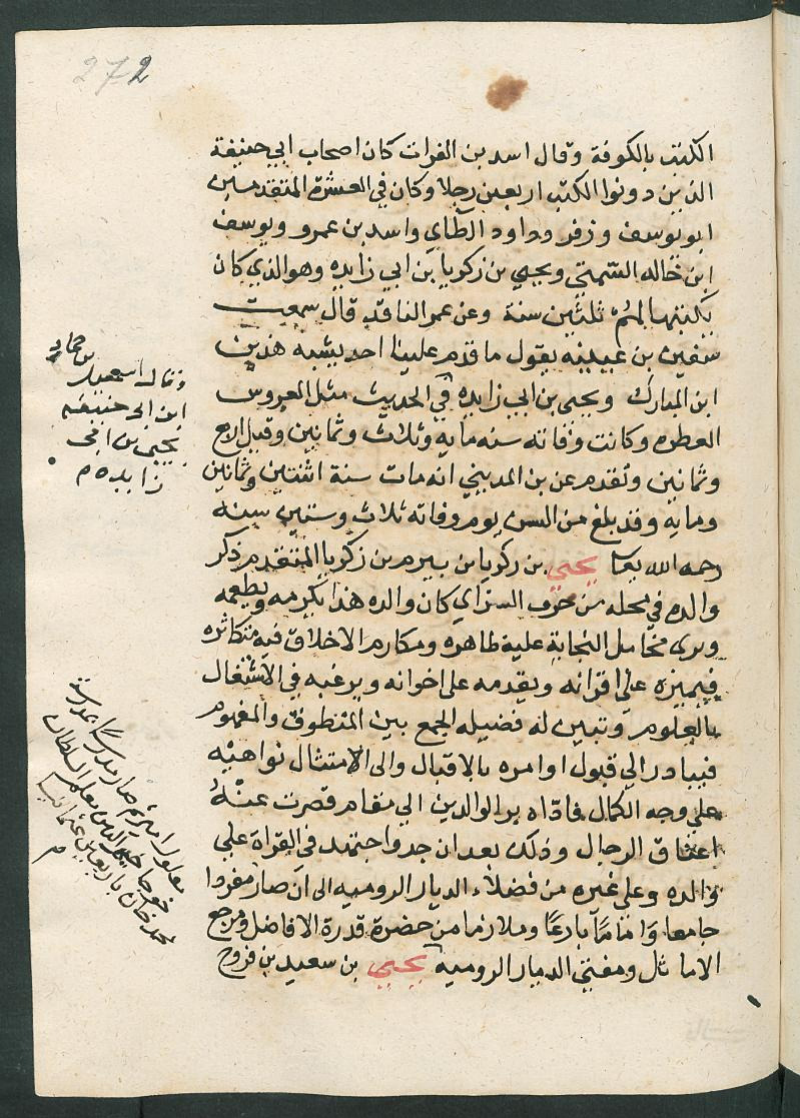 272
الكتب بالكوفة وقال اسد بن الفرات كان اصحاب ابي حنيفة
الذين دونوا الكتب اربعين رجلا وكان في العشرة المتقدمين
ابو يوسف وزفر وداود الطاي واسد بن عمرو ويوسف
ابن خالد السمتي ويحيي بن زكريا بن ابي زايده وهو الذي كان
يكتبها لهم ثلثين سنة وعن عمر الناقد قال سمعت
سفين بن عيينه يقول ما قدم علينا احد يشبه هذين
ابن المبارك ويحيى بن ابي زايده في الحديث مثل العروس
العطره وكانت وفاته سنه مايه وثلاث وثمانين وقيل اربع
وثمانين وتقدم عن بن المديني انه مات سنة اثنتين وثمانين
ومايه وقد بلغ من السن يوم وفاته ثلاث وستين سنه
رحمه الله تعا يحيي بن زكريا بن بيرم بن زكريا المتقدم ذكر
والده في محله من حرف الزاي كان والده هذا يكرمه ويطعمه
ويرى مخامل النجابة علية ظاهره ومكارم الاخلاق فيه متكاثره
فيميزه على اقرانه ويقدمه على اخوانه ويرغبه في الاشتغال
بالعلوم وتبين له فضيله الجمع بين المنطوق والمفهوم
فيبادر الي قبول اوامره بالاقبال والى الامتثال نواهيه
علي وجه الكمال فاداه بر الوالدين الي مقام قصرت عنه
اعناق الرجال وذلك بعد ان جد واجتهد في القراة علي
والده وعلي غيره من فضلاء الديار الروميه الى ان صار مفردا
جامعا واماما بارعا وملازما من حضرة قدرة الافاضل ومرجع
الاماثل ومفتي الديار الروميه يحيى بن سعيد بن فروخ
وقال اسمعيل بن حماد
ابن ابى حنيفه
يحيى بن ابى
زايده م
ثم صار مدرسا بمدرسة
خوجا خير الدين معلم السلطان
محمد خان باربعين عثمانيا
م